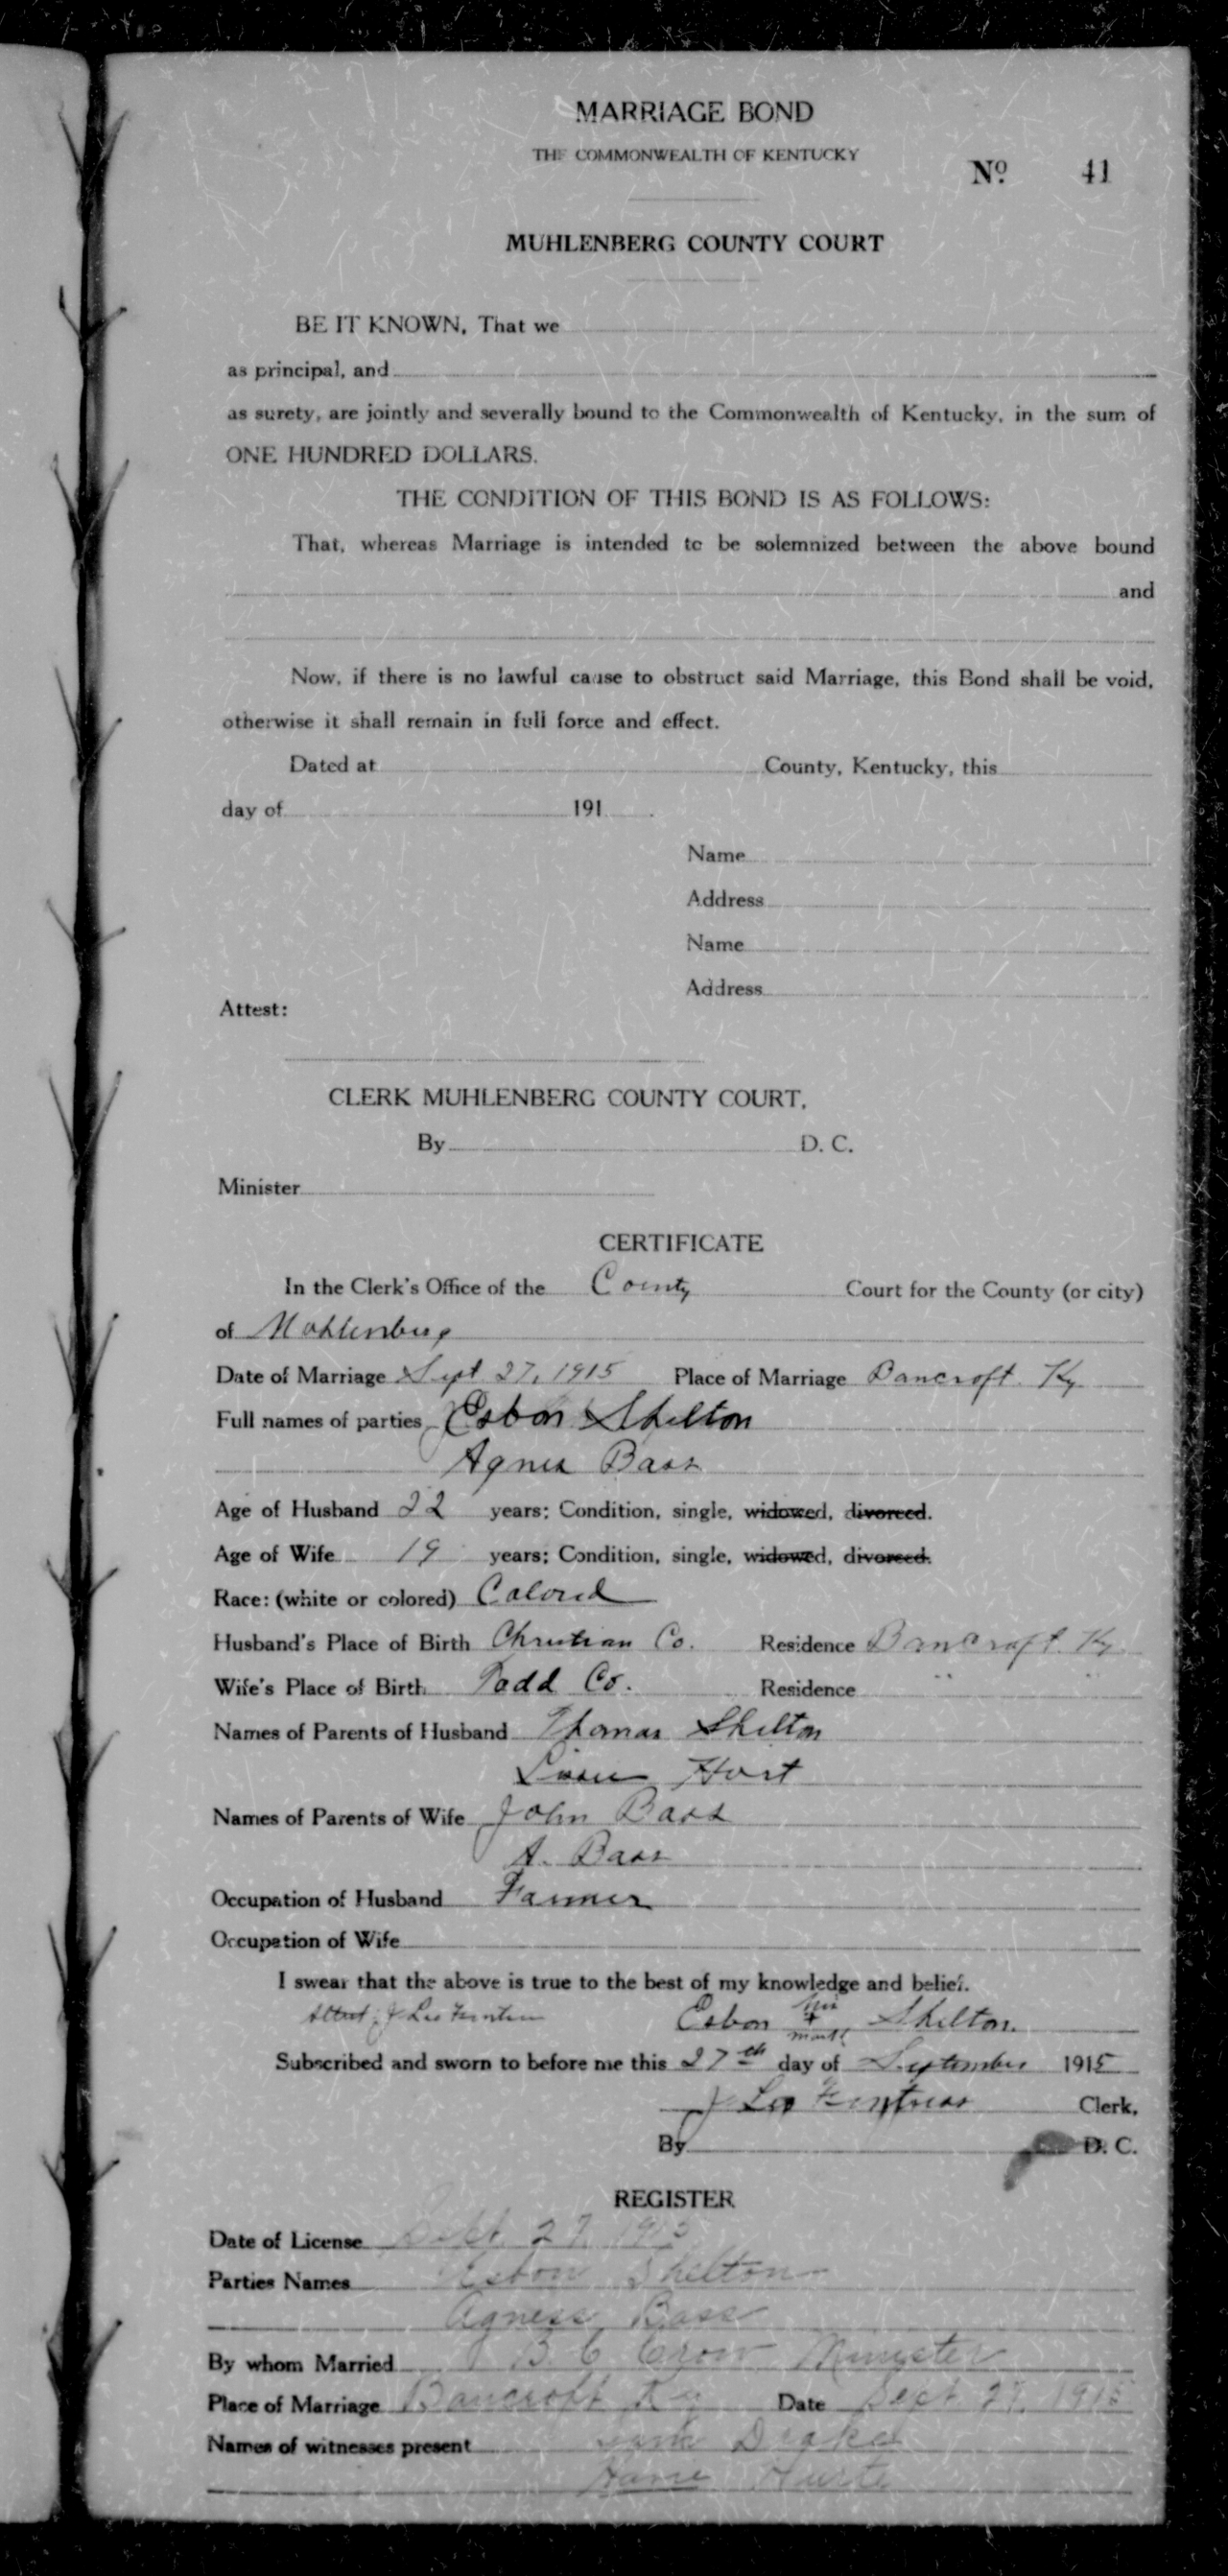 MARRIAGE BOND
THE COMMONWEALTH OF KENTUCKY
No. 41
MUHLENBERG COUNTY COURT
BE IT KNOWN, That we
as principal, and
as surety, are jointly and severally bound to the Commonwealth of Kentucky, in the sum of
ONE HUNDRED DOLLARS.
THE CONDITION OF THIS BOND IS AS FOLLOWS:
That, whereas Marriage is intended to be solemnized between the above bound
and
Now, if there is no lawful cause to obstruct said Marriage, this Bond shall be void,
otherwise it shall remain in full force and effect.
Dated at County, Kentucky, this
day of 191
Name
Address
Name
Address
Attest:
CLERK MUHLENBERG COUNTY COURT,
By D. C.
Minister
CERTIFICATE
In the Clerk's Office of the County Court for the County (or city)
of Muhlenberg
Date of Marriage Sept 27, 1915 Place of Marriage Bancroft Ky
Full names of parties Esbon Shelton
Agnes Bass
Age of Husband 22 years; Condition, single, widowed, divorced.
Age of Wife 19 years; Condition, single, widowed, divorced.
Race: (white or colored) Colored
Husband's Place of Birth Christian Co. Residence Bancroft Ky
Wife's Place of Birth Todd Co. Residence " "
Names of Parents of Husband Thomas Shelton
Hort
Names of Parents of Wife John Bass
A. Bass
Occupation of Husband Farmer
Occupation of Wife
I swear that the above is true to the best of my knowledge and belief.
Attest; J Leo Fentress
Esbon his + mark Shelton.
Subscribed and sworn to before me this 27th day of September 1915
J Leo Fentress Clerk.
By D. C.
REGISTER
Date of License Sept 27 1915
Parties Names Esbon Shelton
Agness Bass
By whom Married B. C. Crow Minister
Place of Marriage Bancroft Ky Date Sept. 27, 1915
Names of witnesses present Drake